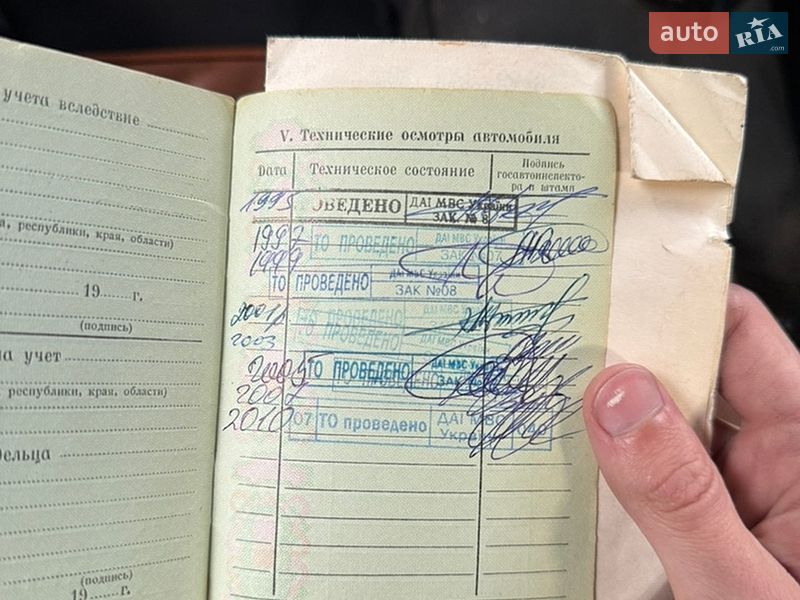 auto RIA .com
учета вследствие
, республики, края, области)
19 г.
(подпись)
на учет
республики, края, области)
дельца
(подпись)
19 г.
V. Технические осмотры автомобиля
Дата Техническое состояние Подпись госавтоинспектора и штамп
1995 ОВЕДЕНО ДАІ МВС України ЗАК. № 8
1997 ТО ПРОВЕДЕНО ДАІ МВС України ЗАК 07
1999 ТО ПРОВЕДЕНО ДАІ МВС України ЗАК №08
2001р
2003 ПРОВЕДЕНО
2005 ТО ПРОВЕДЕНО ДАІ МВС
2007
2010 07 ТО проведено ДАІ МВС України 040